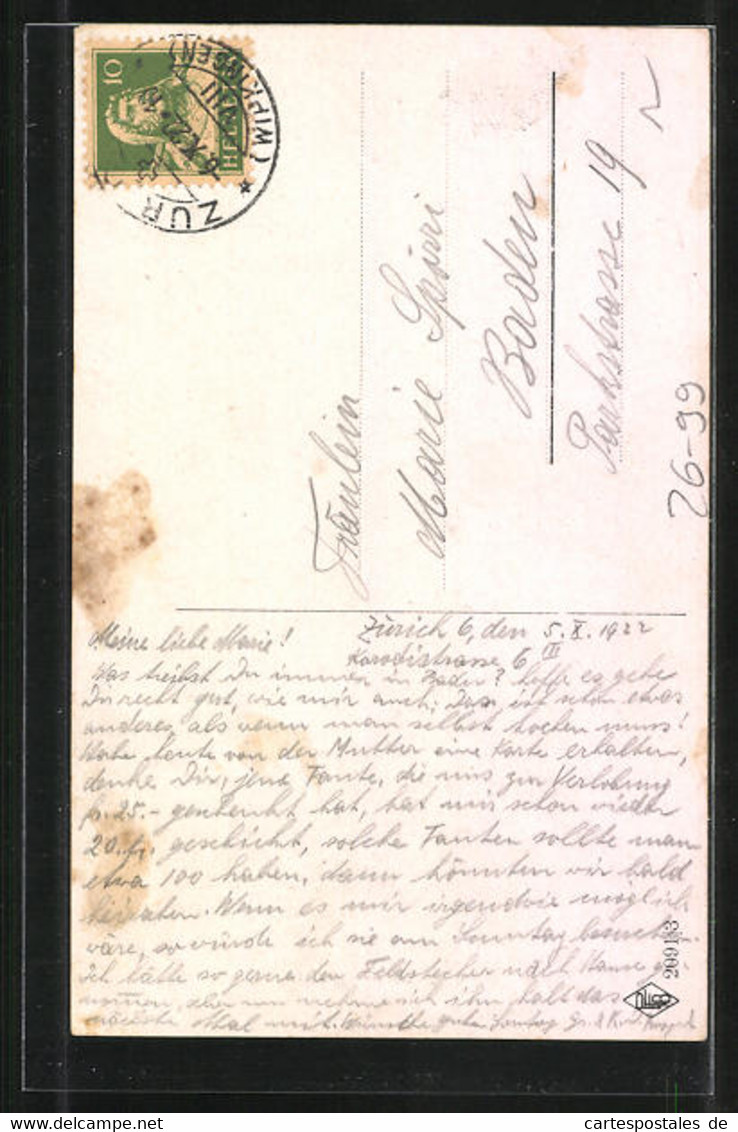 10
HELVETIA
ZÜR
(WIPKINGEN)
6.X.22
Fräulein
Marie Spörri
Baden
Parkstrasse 19
26-99
Zürich 6, den 5. X. 1922
6 III
Meine liebe Marie!
Was treibst Du immer in Baden? hoffe es gehe
Dir recht gut, wie mir auch. Das ist schon etwas
anderes als wenn man selbst kochen muss!
Habe heute von der Mutter eine Karte erhalten,
denke Dir, jene Tante, die uns zur Verlobung
fr. 25.- geschenkt hat, hat mir schon wieder
20.fr. geschickt, solche Tanten sollte man
etwa 100 haben, dann könnten wir bald
heiraten. Wenn es mir irgendwie möglich
wäre, so würde ich sie am Sonntag besuchen.
Ich hätte so gerne den Feldstecher nach Hause
nehme ich ihn halt das
nächste Mal mit. Sonntag
20913
delcampe.net
cartespostales de